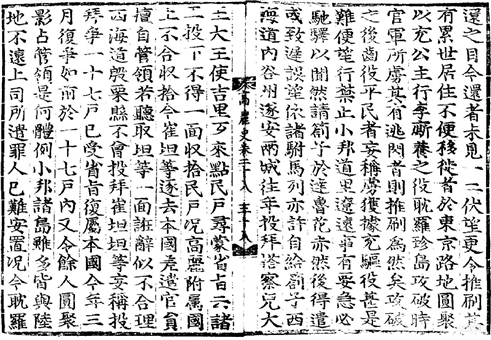 還之目今還者未見一二伏望更令推刷其
有累世居住不便移徙者於東京路地圓聚
以充公主行李廝養之役耽羅珍島攻破時
官軍所虜其有逃閃者則推刷爲然矣攻破
之後齒役平民者妄稱虜獲據充驅役甚是
難便望行禁止小邦道里遼遠事有妄急必
馳驛以聞然請箚子於達魯花赤然後得遣
或致遲誤望依諸駙馬列亦許自給箚子西
海道內谷州遂安兩城往年投拜塔察兒大
高麗史卷二十八 三十八
土大王使吉里歹來點民戶尋蒙省旨云諸
二投下不得一面收拾民戶況高麗附屬國
土不合收拾今崔坦等逐去本國差遣官員
擅自管領若聽取坦等一面誑辭似不合理
西海道殷栗縣不曾投拜崔坦坦等妄稱投
拜爭一十七戶已受省旨復屬本國今年三
月復爭如前於一十七戶內又令餘人圓聚
影占管領是何體例小邦諸島雖多皆與陸
地不遠上司所遣罪人已難安置況今耽羅